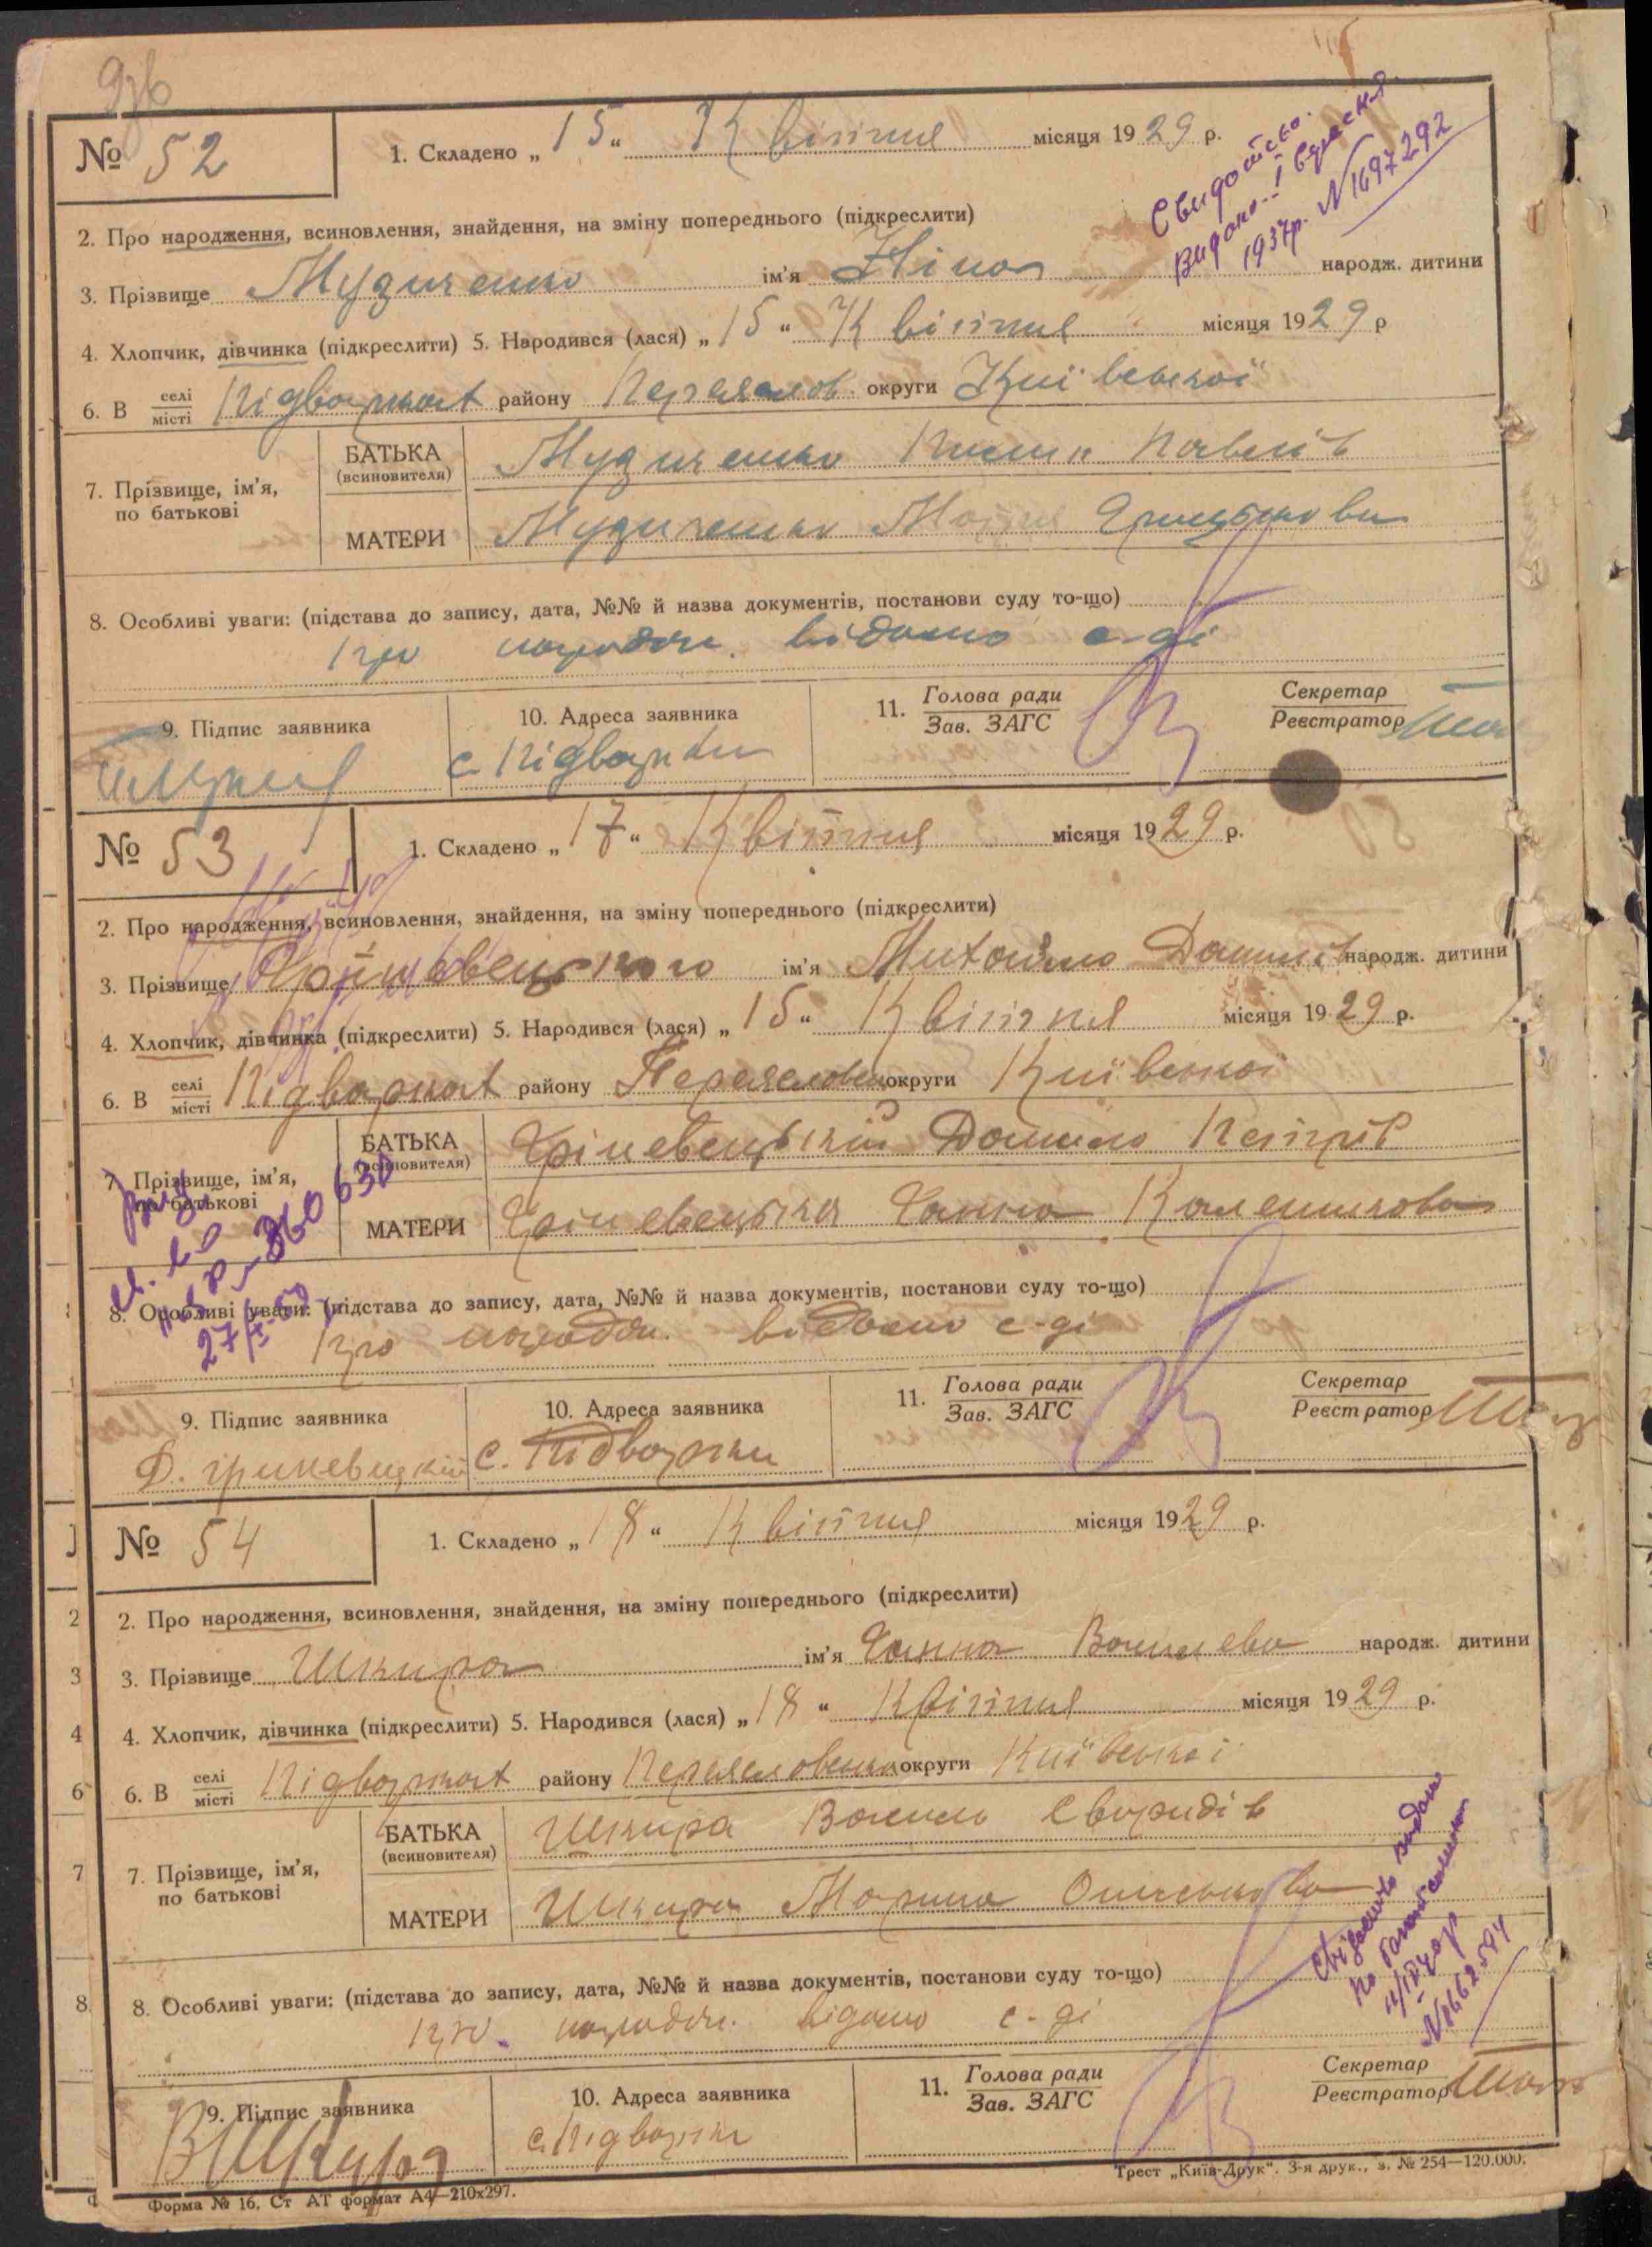 № 52
1. Складено „15“ Квітня місяця 1929 р.
Свидотство.
1937р. № 1697292
2. Про народження, всиновлення, знайдення, на зміну попереднього (підкреслити)
3. Прізвище Музиченко ім'я Ніна народж. дитини
4. Хлопчик, дівчинка (підкреслити) 5. Народився (лася) „15“ Квітня місяця 1929 р
6. В селі/місті Підварках району Переяслов. округи Київської
7. Прізвище, ім'я, по батькові
БАТЬКА (всиновителя) Музиченко Павлів
МАТЕРИ Музиченко Грицькова
8. Особливі уваги: (підстава до запису, дата, №№ й назва документів, постанови суду то-що)
про народж. відомо с-ді
9. Підпис заявника
10. Адреса заявника
с. Підварки
11. Голова ради
Зав. ЗАГС
Секретар
Реєстратор
№ 53
1. Складено „17“ Квітня місяця 1929 р.
2. Про народження, всиновлення, знайдення, на зміну попереднього (підкреслити)
3. Прізвище Гріневецького ім'я Михайло Данилів народж. дитини
4. Хлопчик, дівчинка (підкреслити) 5. Народився (лася) „15“ Квітня місяця 1929 р.
6. В селі/місті Підварках району Переясловськ округи Київської
7. Прізвище, ім'я, по батькові
БАТЬКА (всиновителя) Гріневецький Данило Петрів
МАТЕРИ Гріневецька Ганна Каленикова
8. Особливі уваги: (підстава до запису, дата, №№ й назва документів, постанови суду то-що)
про народж. відомо с-ді
9. Підпис заявника
Д. Гриневецкий
10. Адреса заявника
с. Підварки
11. Голова ради
Зав. ЗАГС
Секретар
Реєстратор
№ 54
1. Складено „18“ Квітня місяця 1929 р.
2. Про народження, всиновлення, знайдення, на зміну попереднього (підкреслити)
3. Прізвище Шкира ім'я Ганна Василева народж. дитини
4. Хлопчик, дівчинка (підкреслити) 5. Народився (лася) „18“ Квітня місяця 1929 р.
6. В селі/місті Підварках району Переясловськ округи Київської
7. Прізвище, ім'я, по батькові
БАТЬКА (всиновителя) Шкира Василь Свиридів
МАТЕРИ Шкира Марина Описькова
8. Особливі уваги: (підстава до запису, дата, №№ й назва документів, постанови суду то-що)
про. народж. відомо с-ді
9. Підпис заявника
В Шкура
10. Адреса заявника
с. Підварки
11. Голова ради
Зав. ЗАГС
Секретар
Реєстратор
Форма № 16. Ст АТ формат А4—210х297.
Трест „Київ-Друк“. 3-я друк., з. № 254—120.000.